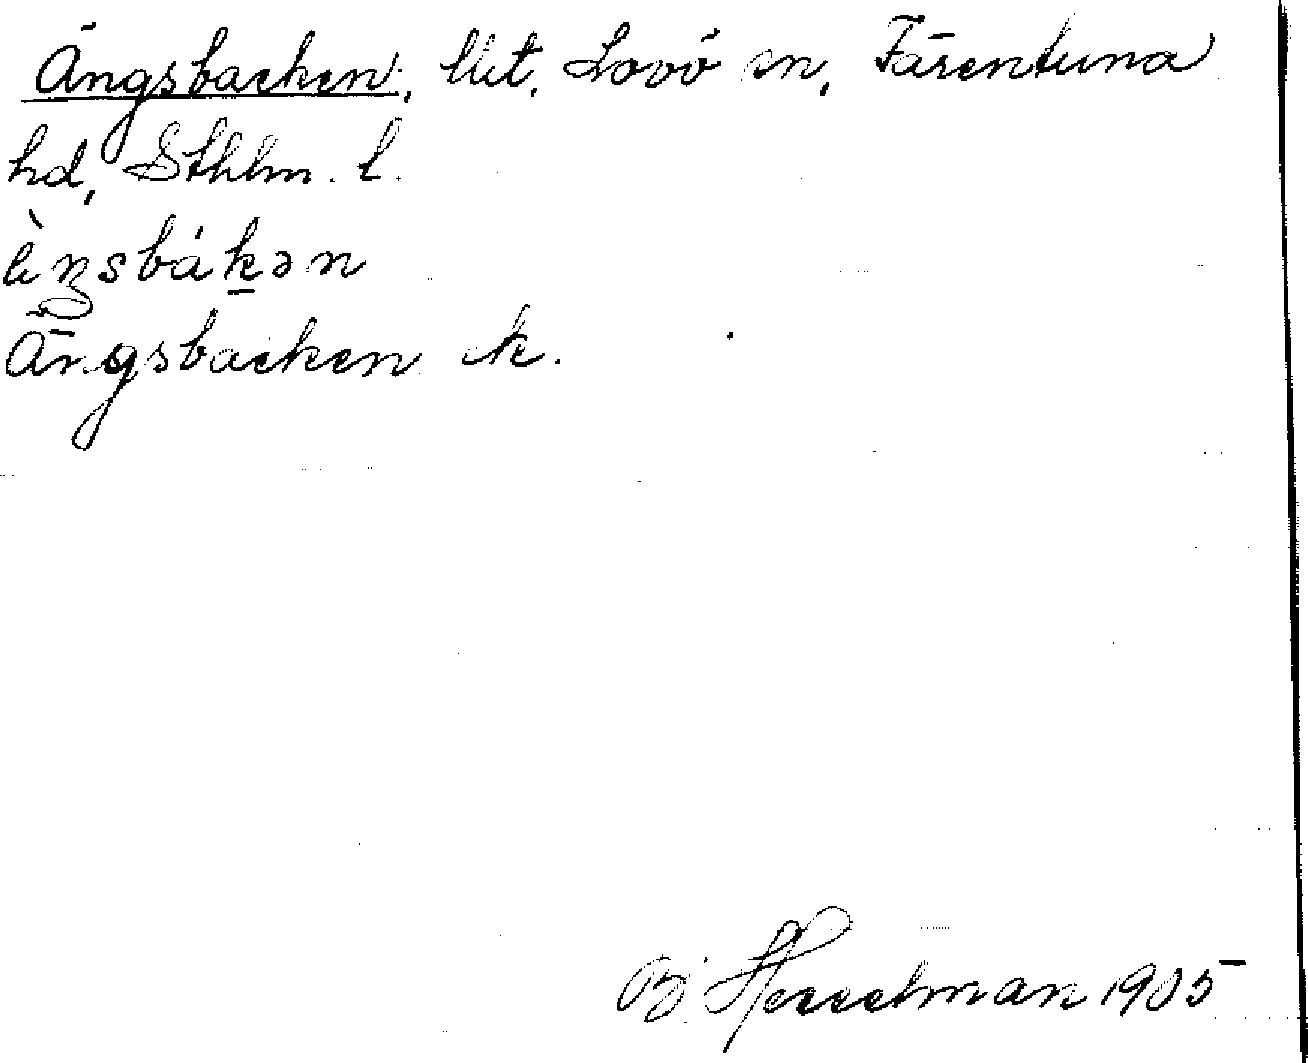 Ängsbacken, lht, Lovö sn, Färentuna
hd, Sthlm. l.
Ängsbacken ek.
Bj Hesselman 1905